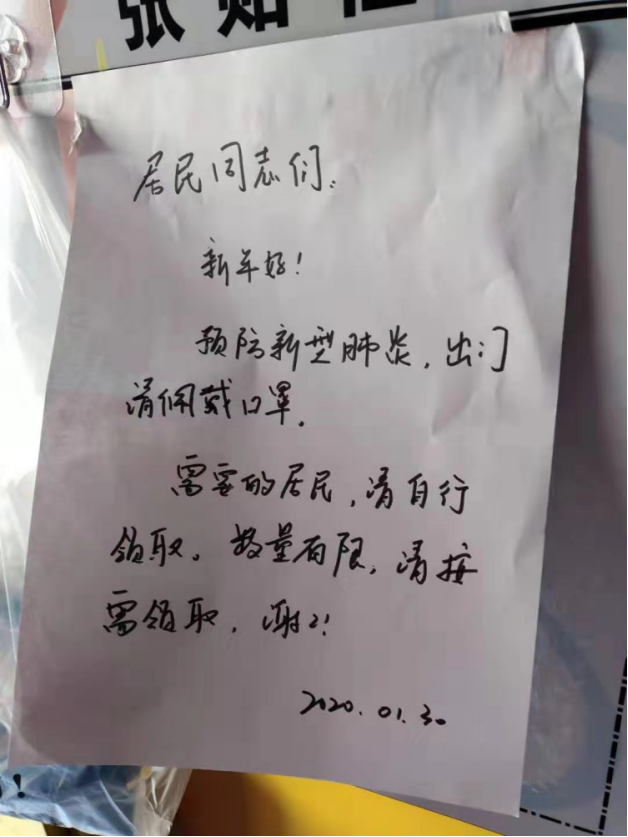 张贴栏
居民同志们：
新年好！
预防新型肺炎，出门
请佩戴口罩。
需要的居民，请自行
领取。数量有限，请按
需领取，谢谢！
2020.01.30
！